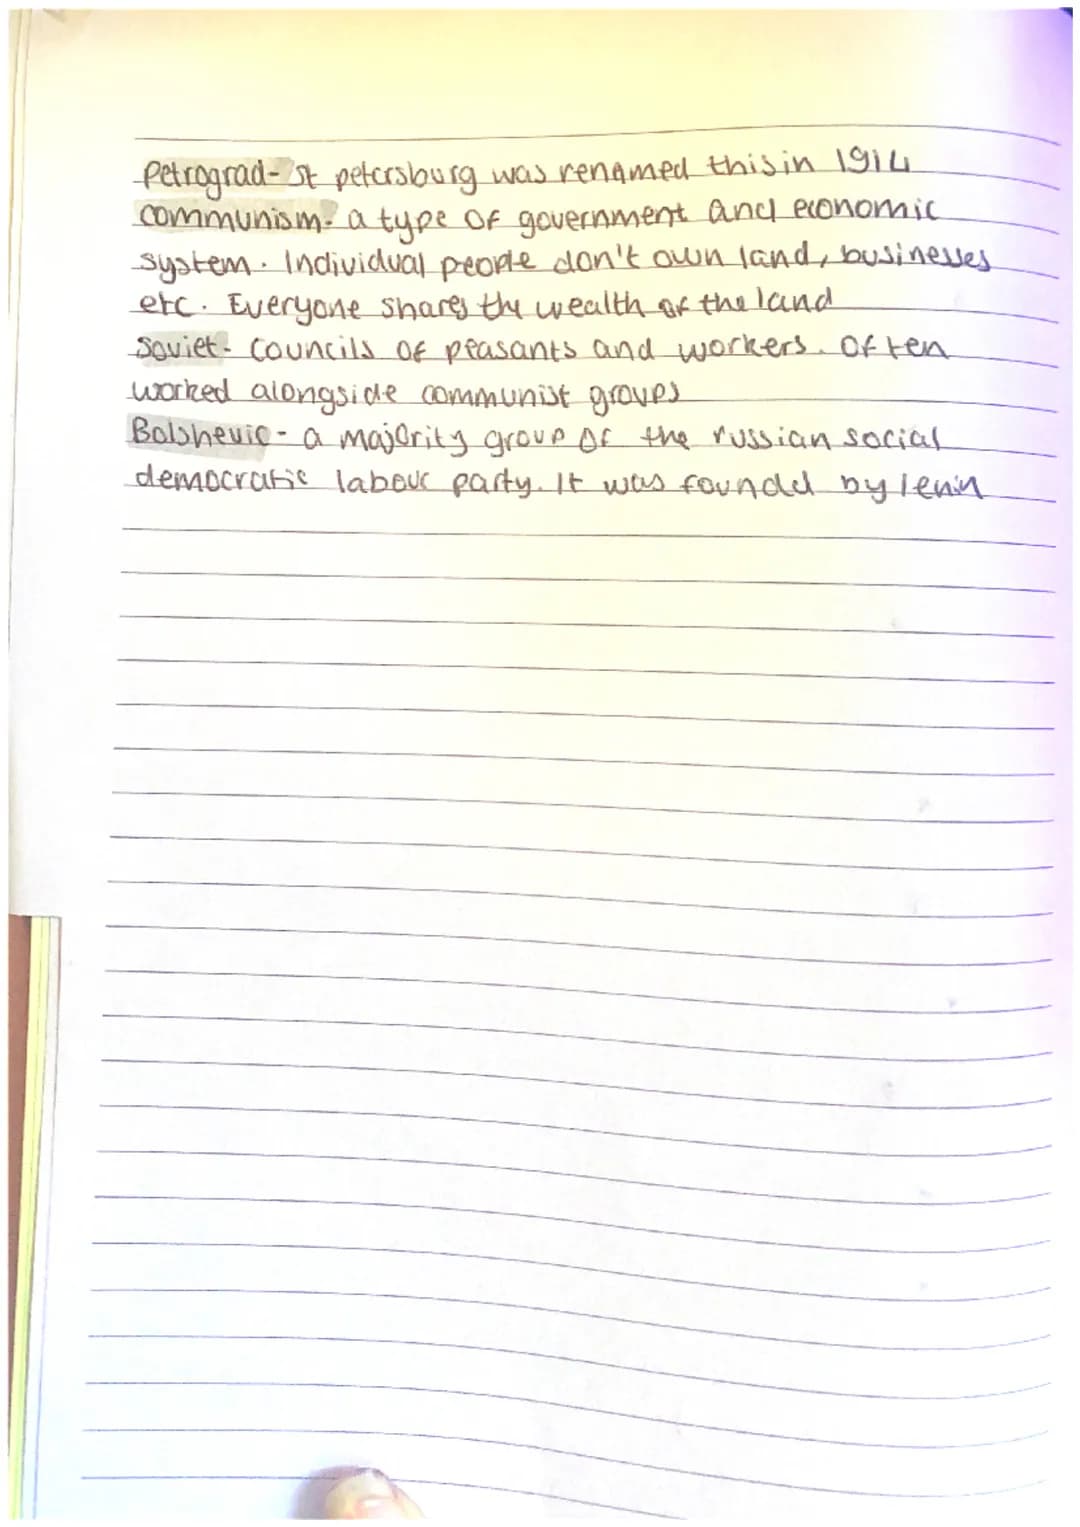 Petrograd- St petersburg was renamed this in 1914
communism- a type of government and economic
system. Individual people don't own land, businesses
etc. Everyone shares the wealth of the land
Soviet- Councils of peasants and workers. Often
worked alongside communist groups
Bolshevic- a majority group of the russian social
democratic labour party. It was founded by lenin